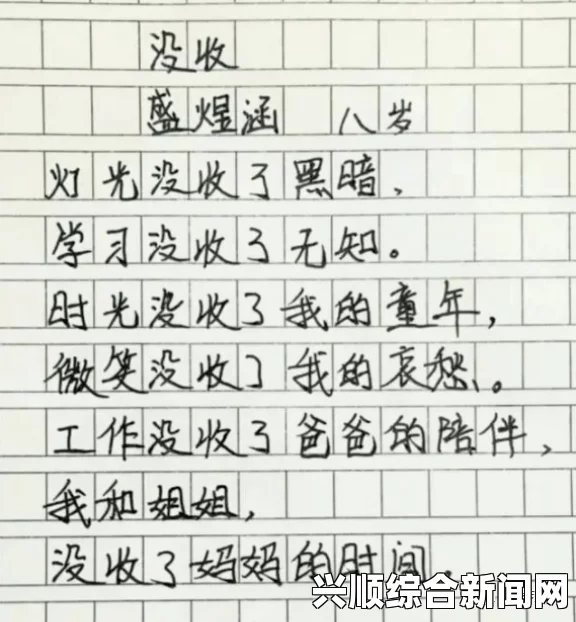 没收
盛煜涵 八岁
灯光没收了黑暗，
学习没收了无知。
时光没收了我的童年，
微笑没收了我的哀愁。
工作没收了爸爸的陪伴，
我和姐姐，
没收了妈妈的时间。
兴顺综合新闻网